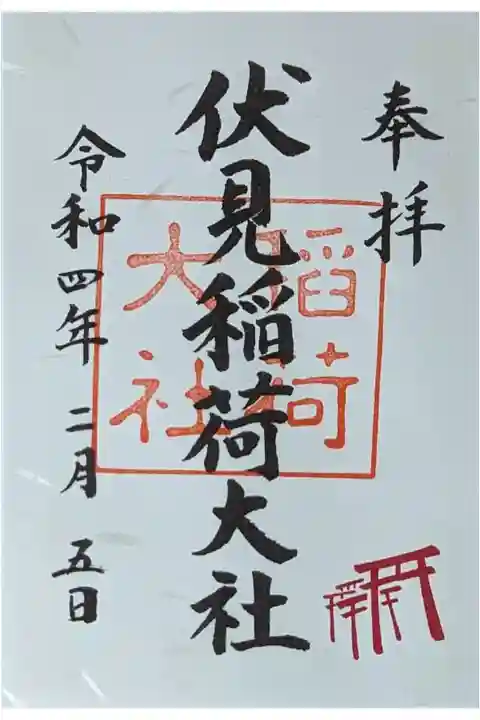 奉拝
伏見稲荷大社
稲荷
大社
令和四年 二月 五日